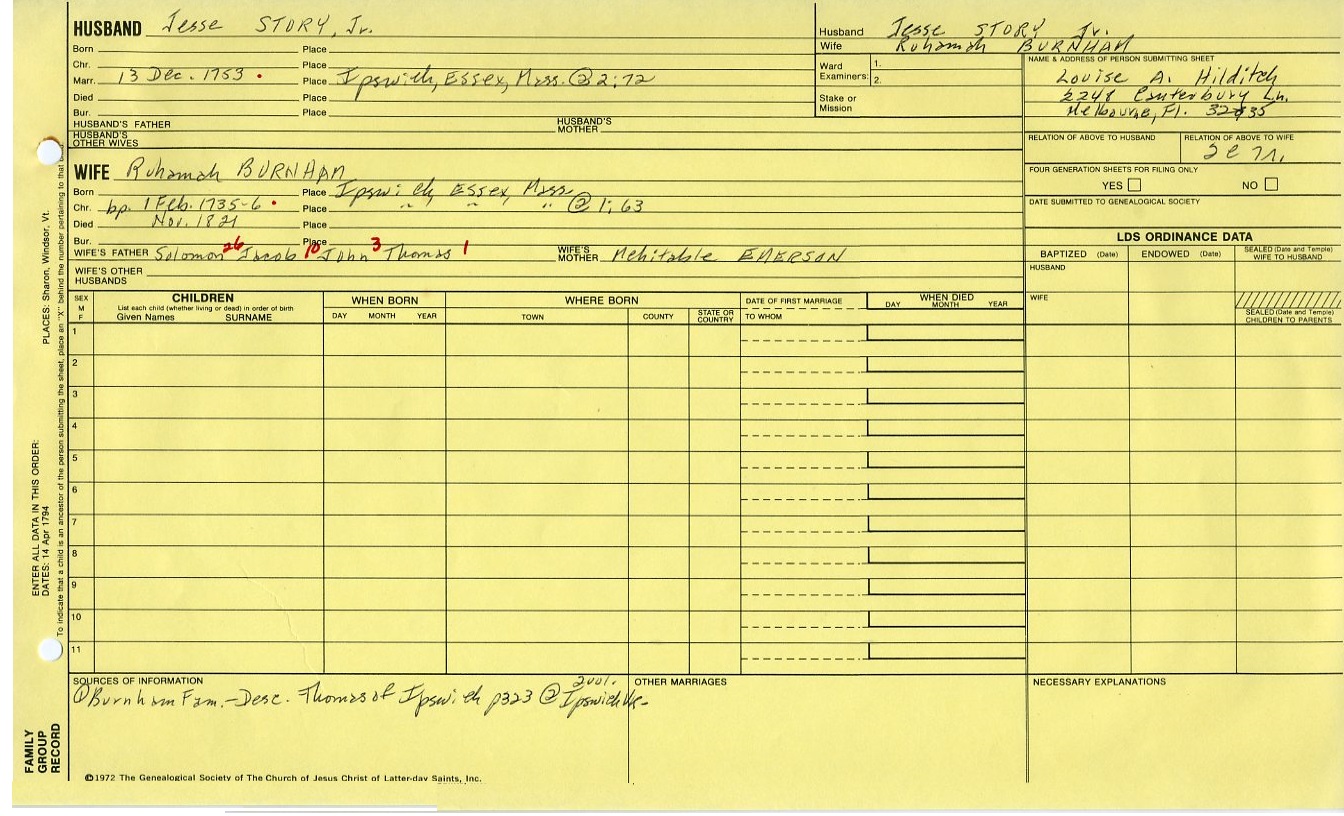 HUSBAND Jesse STORY, Jr.
Born Place
Chr. Place
Marr. 13 Dec. 1753 • Place Ipswich, Essex, Mass. @ 2:72
Died Place
Bur. Place
HUSBAND'S FATHER HUSBAND'S MOTHER
HUSBAND'S OTHER WIVES
Husband Jesse STORY Jr.
Wife Ruhamah BURNHAM
Ward Examiners: 1. 2.
Stake or Mission
NAME & ADDRESS OF PERSON SUBMITTING SHEET
Louise A. Hilditch
2248 Canterbury Ln.
Melbourne, Fl. 32935
RELATION OF ABOVE TO HUSBAND RELATION OF ABOVE TO WIFE
FOUR GENERATION SHEETS FOR FILING ONLY
YES NO
DATE SUBMITTED TO GENEALOGICAL SOCIETY
WIFE Ruhamah BURNHAM
Born Place Ipswich, Essex, Mass
Chr. bp. 1 Feb. 1735-6 • Place " " " @ 1:63
Died Nov. 1821 Place
Bur. Place
WIFE'S FATHER Solomon 26 Jacob 10 John 3 Thomas 1 WIFE'S MOTHER Mehitable EMERSON
WIFE'S OTHER HUSBANDS
LDS ORDINANCE DATA
BAPTIZED (Date) ENDOWED (Date) SEALED (Date and Temple) WIFE TO HUSBAND
HUSBAND
WIFE
SEALED (Date and Temple) CHILDREN TO PARENTS
SEX M F
CHILDREN
List each child (whether living or dead) in order of birth
Given Names SURNAME
WHEN BORN
DAY MONTH YEAR
WHERE BORN
TOWN COUNTY STATE OR COUNTRY
DATE OF FIRST MARRIAGE
TO WHOM
WHEN DIED
DAY MONTH YEAR
1
2
3
4
5
6
7
8
9
10
11
SOURCES OF INFORMATION
Burnham Fam.-Desc. Thomas of Ipswich p323 @ Ipswich
OTHER MARRIAGES
NECESSARY EXPLANATIONS
©1972 The Genealogical Society of The Church of Jesus Christ of Latter-day Saints, Inc.
FAMILY GROUP RECORD
ENTER ALL DATA IN THIS ORDER:
DATES: 14 Apr 1794
PLACES: Sharon, Windsor, Vt.
To indicate that a child is an ancestor of the person submitting the sheet, place an "X" behind the number pertaining to that